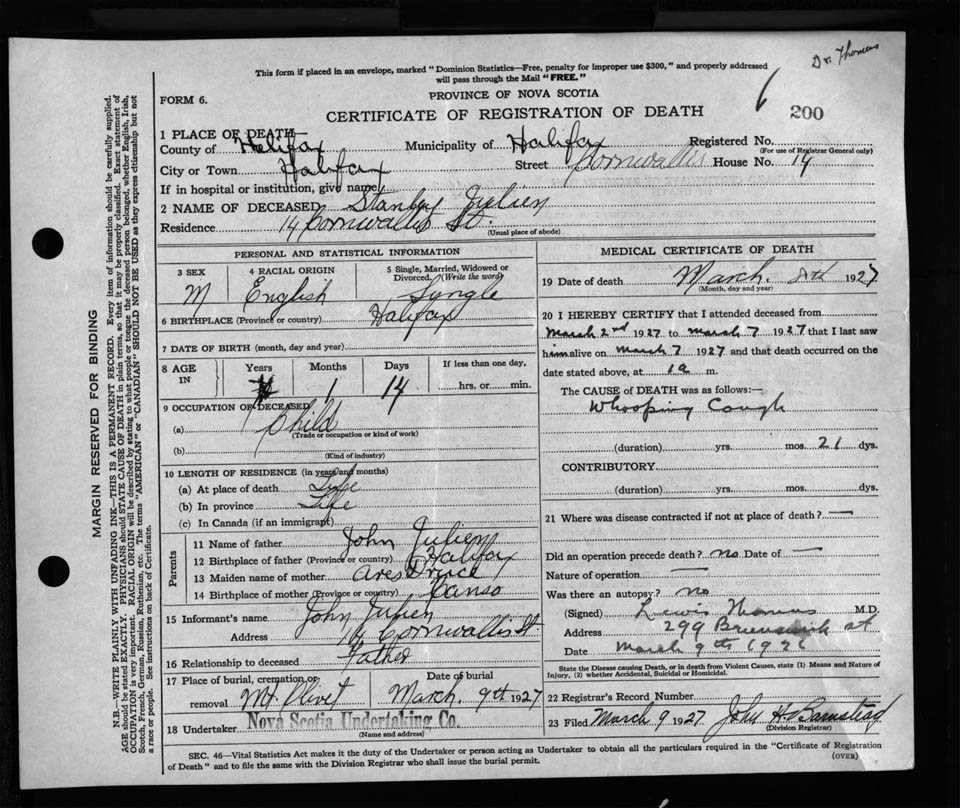 Dr. Thomas
This form if placed in an envelope, marked "Dominion Statistics—Free, penalty for improper use $300," and properly addressed
will pass through the Mail "FREE."
PROVINCE OF NOVA SCOTIA
FORM 6.
CERTIFICATE OF REGISTRATION OF DEATH
6
200
1 PLACE OF DEATH—
County of Halifax Municipality of Halifax Registered No.
(For use of Registrar General only)
City or Town Halifax Street Cornwallis House No. 14
If in hospital or institution, give name
2 NAME OF DECEASED Stanley Julien
Residence 14 Cornwallis St.
(Usual place of abode)
PERSONAL AND STATISTICAL INFORMATION
3 SEX
M
4 RACIAL ORIGIN
English
5 Single, Married, Widowed or
Divorced. (Write the word)
Syngle
6 BIRTHPLACE (Province or country) Halifax
7 DATE OF BIRTH (month, day and year)
8 AGE
IN
Years
Months
1
Days
14
If less than one day,
hrs. or min.
9 OCCUPATION OF DECEASED
(a) Child
(Trade or occupation or kind of work)
(b)
(Kind of industry)
10 LENGTH OF RESIDENCE (in years and months)
(a) At place of death Life
(b) In province Life
(c) In Canada (if an immigrant)
Parents
11 Name of father John Julien
12 Birthplace of father (Province or country) Halifax
13 Maiden name of mother
14 Birthplace of mother (Province or country) Canso
15 Informant's name John Julien
Address 14 Cornwallis St
16 Relationship to deceased Father
17 Place of burial, cremation or
removal Mt Olivet
Date of burial
March 9th 1927
18 Undertaker Nova Scotia Undertaking Co.
(Name and address)
MEDICAL CERTIFICATE OF DEATH
19 Date of death March 8th 1927
(Month, day and year)
20 I HEREBY CERTIFY that I attended deceased from
March 2nd 1927 to March 7 1927 that I last saw
him alive on March 7 1927 and that death occurred on the
date stated above, at 1 a m.
The CAUSE of DEATH was as follows:—
Whooping Cough
(duration) yrs. mos. 21 dys.
CONTRIBUTORY
(duration) yrs. mos. dys.
21 Where was disease contracted if not at place of death? —
Did an operation precede death? no Date of —
Nature of operation —
Was there an autopsy? no
(Signed) Lewis Thomas M.D.
Address 299 Brunswick st
Date March 9th
State the Disease causing Death, or in death from Violent Causes, state (1) Means and Nature of
Injury, (2) whether Accidental, Suicidal or Homicidal.
22 Registrar's Record Number
23 Filed March 9 1927 John H. Barnstead
(Division Registrar)
SEC. 46—Vital Statistics Act makes it the duty of the Undertaker or person acting as Undertaker to obtain all the particulars required in the "Certificate of Registration
of Death" and to file the same with the Division Registrar who shall issue the burial permit.
(OVER)
MARGIN RESERVED FOR BINDING
N.B.—WRITE PLAINLY WITH UNFADING INK—THIS IS A PERMANENT RECORD. Every item of information should be carefully supplied.
AGE should be stated EXACTLY. PHYSICIANS should STATE CAUSE OF DEATH in plain terms, so that it may be properly classified. Exact statement of
OCCUPATION is very important. RACIAL ORIGIN will be described by stating to what people or tongue the deceased person belonged, whether English, Irish,
Scotch, French, German, Russian, Ruthenian, etc. The terms "AMERICAN" or "CANADIAN" SHOULD NOT BE USED as they express citizenship but not
a race or people. See instructions on back of Certificate.